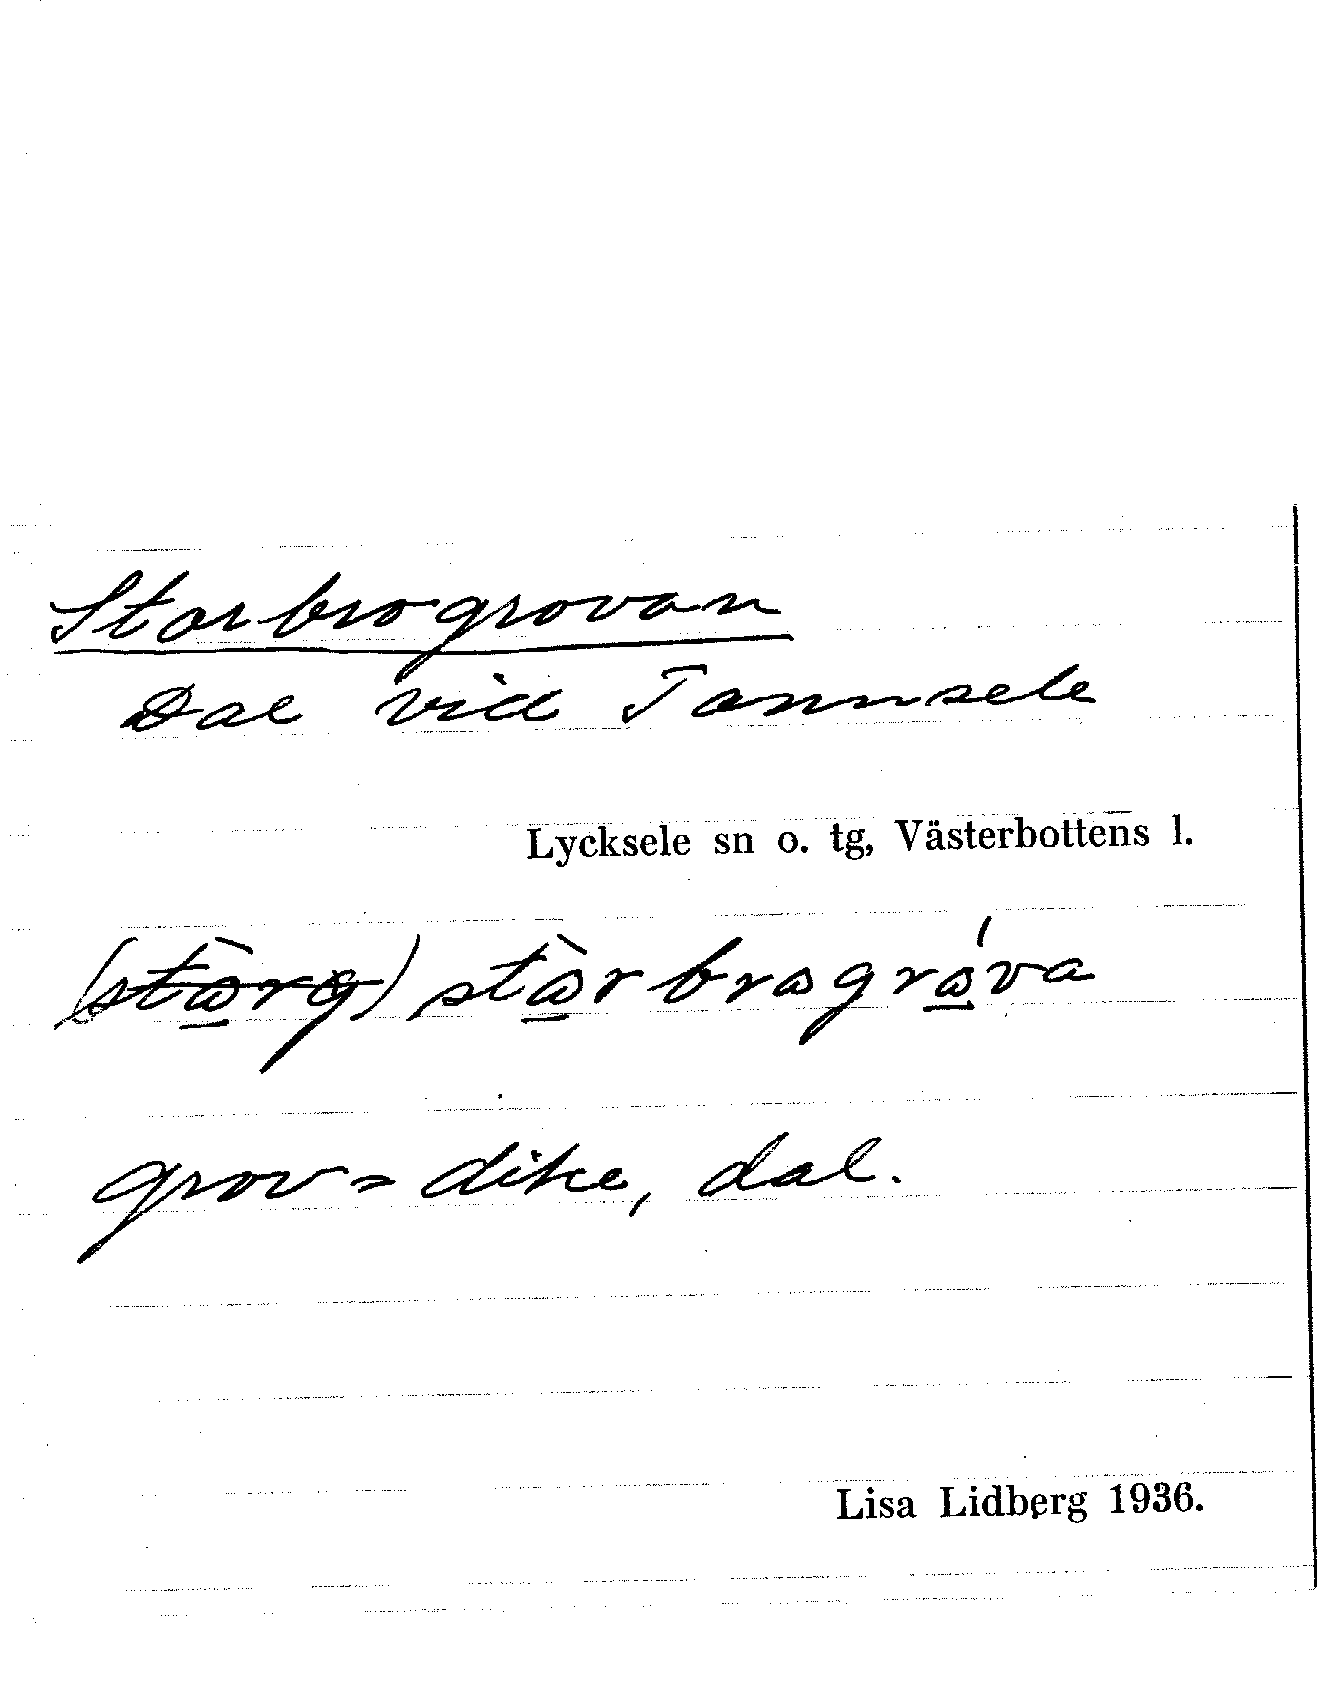 Storbrogrovan
Dal vid Tannsele
Lycksele sn o. tg, Västerbottens l.
grov = dike, dal.
Lisa Lidberg 1936.